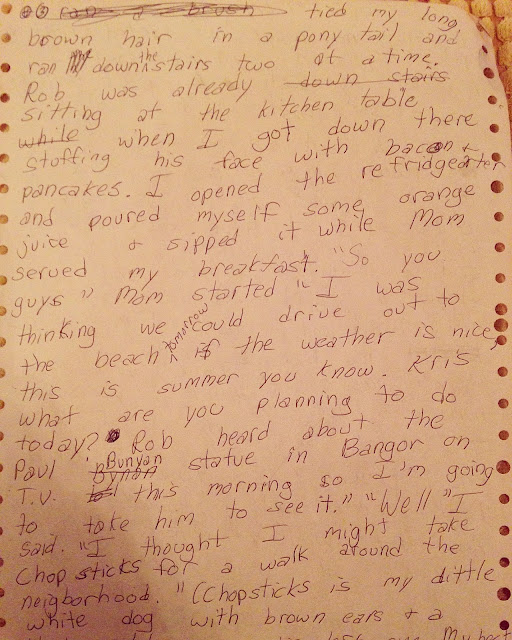 ran a brush tied my long
brown hair in a pony tail and
ran down the stairs two at a time.
Rob was already down stairs
sitting at the kitchen table
while when I got down there
stuffing his face with bacon +
pancakes. I opened the refridgearter
and poured myself some orange
juice + sipped it while Mom
served my breakfast. "So you
guys" Mom started "I was
thinking we could drive out to
the beach tomorrow if the weather is nice,
this is summer you know. Kris
what are you planning to do
today? Rob heard about the
Paul Bynan Bunyan statue in Bangor on
T.V. this morning so I'm going
to take him to see it." "Well" I
said. "I thought I might take
Chopsticks for a walk around the
neigborhood." (Chopsticks is my dittle
white dog with brown ears + a
My best